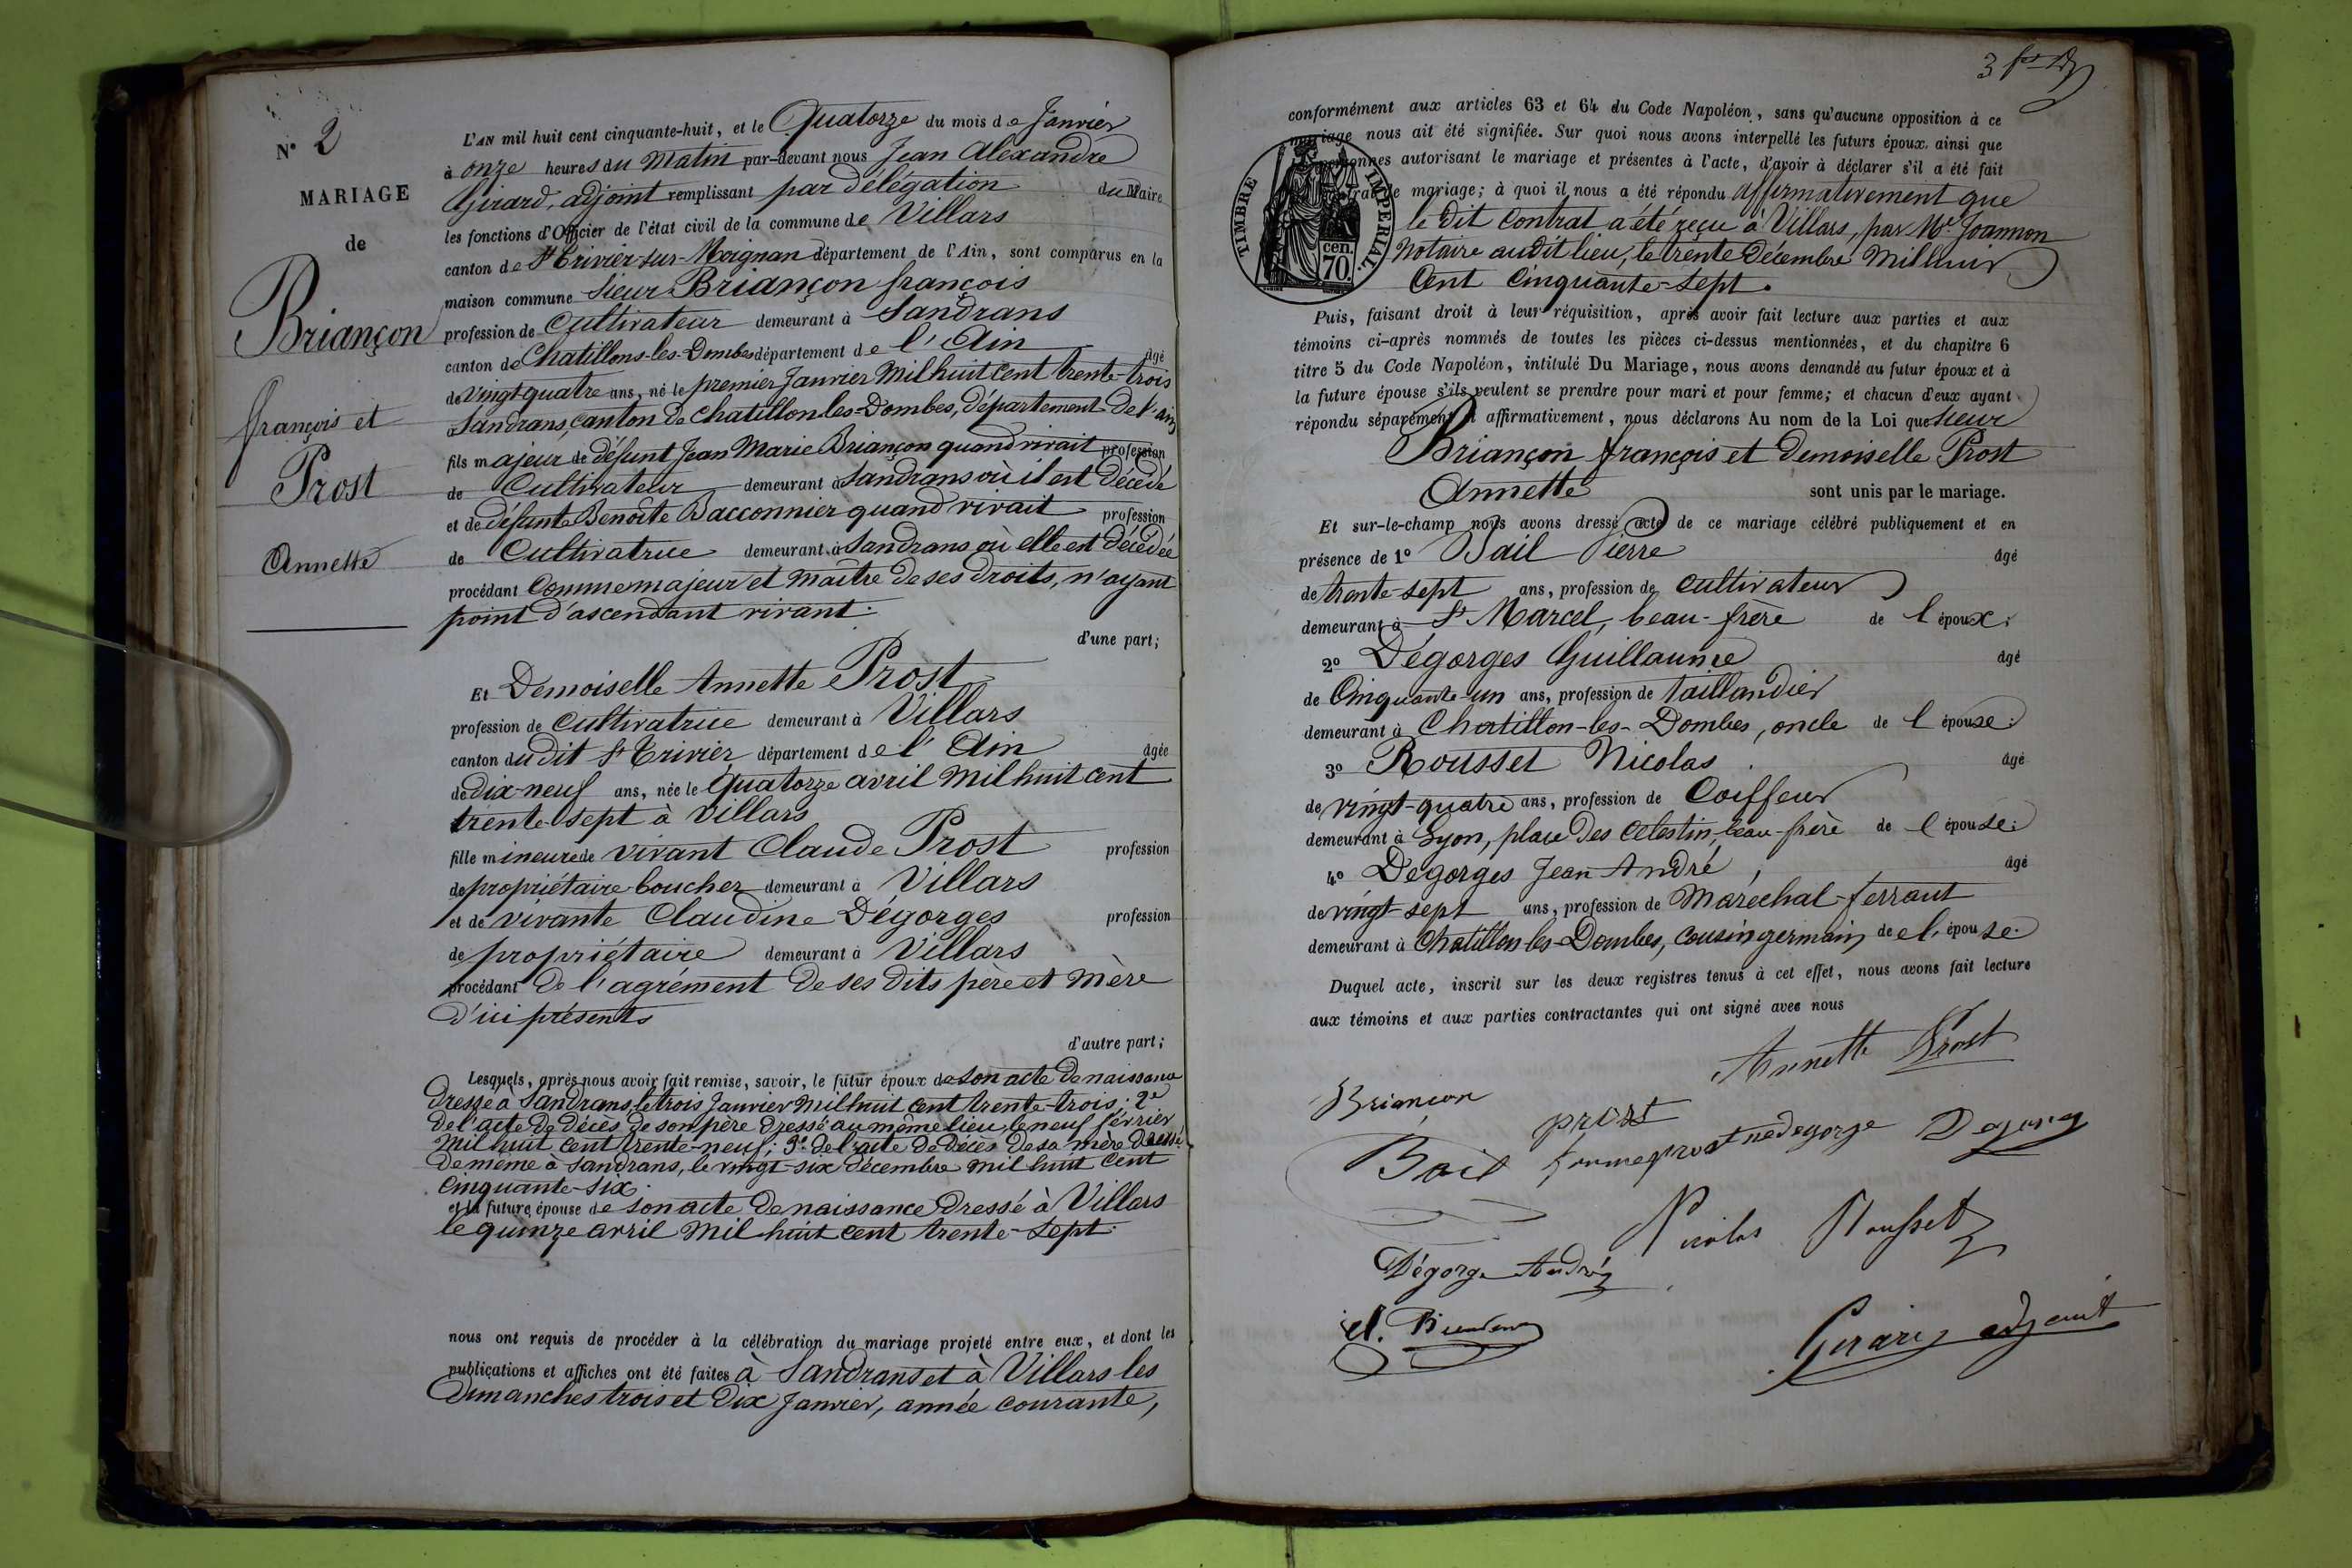 N° 2
MARIAGE
de
Briançon
françois et
Prost
Annette
L'AN mil huit cent cinquante-huit, et le Quatorze du mois de Janvier
à onze heures du Matin par-devant nous Jean Alexandre
Girard, adjoint remplissant par délégation du Maire
les fonctions d'Officier de l'état civil de la commune de Villars
canton de St Trivier-sur-Moignan département de l'Ain, sont comparus en la
maison commune Sieur Briançon françois
profession de Cultivateur demeurant à Sandrans
canton de Chatillons-les-Dombes département de l'Ain âgé
de vingt quatre ans, né le premier Janvier Mil huit Cent trente-trois
à Sandrans, canton de Chatillon les-Dombes, département de l'ain
fils majeur de défunt Jean Marie Briançon quand vivait profession
de Cultivateur demeurant à Sandrans où il est décédé
et de défunte Benoite Bacconnier quand vivait profession
de Cultivatrice demeurant à Sandrans où elle est décédée
procédant Comme majeur et maître de ses droits, n'ayant
point d'ascendant vivant.
d'une part;
Et Demoiselle Annette Prost
profession de Cultivatrice demeurant à Villars
canton du dit St Trivier département de l'Ain âgée
de dix-neuf ans, née le Quatorze avril Mil huit cent
trente-sept à Villars
fille mineure de vivant Claude Prost profession
de propriétaire boucher demeurant à Villars
et de vivante Claudine Dégorges profession
de propriétaire demeurant à Villars
procédant de l'agrément de ses dits père et mère
d'ici présents
d'autre part;
Lesquels, après nous avoir fait remise, savoir, le futur époux de son acte de naissance
dressé à Sandrans, le trois Janvier mil huit cent trente-trois; 2°
de l'acte de décès de son père dressé au même lieu, le neuf février
mil huit cent trente-neuf; 3° de l'acte de décès de sa mère dressé
de même à Sandrans, le vingt-six décembre mil huit cent
cinquante-six.
et la future épouse de son acte de naissance dressé à Villars
le quinze avril mil huit cent trente-sept.
nous ont requis de procéder à la célébration du mariage projeté entre eux, et dont les
publications et affiches ont été faites à Sandrans et à Villars les
Dimanches trois et dix Janvier, année courante,
3
conformément aux articles 63 et 64 du Code Napoléon, sans qu'aucune opposition à ce
mariage nous ait été signifiée. Sur quoi nous avons interpellé les futurs époux, ainsi que
personnes autorisant le mariage et présentes à l'acte, d'avoir à déclarer s'il a été fait
contrat de mariage; à quoi il nous a été répondu affirmativement que
TIMBRE IMPERIAL.
cen.
70
le dit Contrat a été reçu à Villars, par Me Joannon
Notaire audit lieu, le trente Décembre Mil huit
Cent Cinquante-sept.
Puis, faisant droit à leur réquisition, après avoir fait lecture aux parties et aux
témoins ci-après nommés de toutes les pièces ci-dessus mentionnées, et du chapitre 6
titre 5 du Code Napoléon, intitulé Du Mariage, nous avons demandé au futur époux et à
la future épouse s'ils veulent se prendre pour mari et pour femme; et chacun d'eux ayant
répondu séparément et affirmativement, nous déclarons Au nom de la Loi que Sieur
Briançon françois et Demoiselle Prost
Annette sont unis par le mariage.
Et sur-le-champ nous avons dressé acte de ce mariage célébré publiquement et en
présence de 1° Bail Pierre âgé
de trente-sept ans, profession de Cultivateur
demeurant à St Marcel, beau-frère de l'époux;
2° Dégorges Guillaume âgé
de Cinquante-un ans, profession de taillandier
demeurant à Chatillon-les-Dombes, oncle de l'épouse:
3° Rousset Nicolas âgé
de vingt-quatre ans, profession de Coiffeur
demeurant à Lyon, place des Celestin, beau-frère de l'épouse:
4° Dégorges Jean André, âgé
de vingt-sept ans, profession de Maréchal-ferrant
demeurant à Chatillon les-Dombes, cousin germain de l'épouse.
Duquel acte, inscrit sur les deux registres tenus à cet effet, nous avons fait lecture
aux témoins et aux parties contractantes qui ont signé avec nous
Annette Prost
Briançon
prost
Bail femme prost née degorge Degorg
Nicolas Rousset
Dégorge André
Girard adjoint